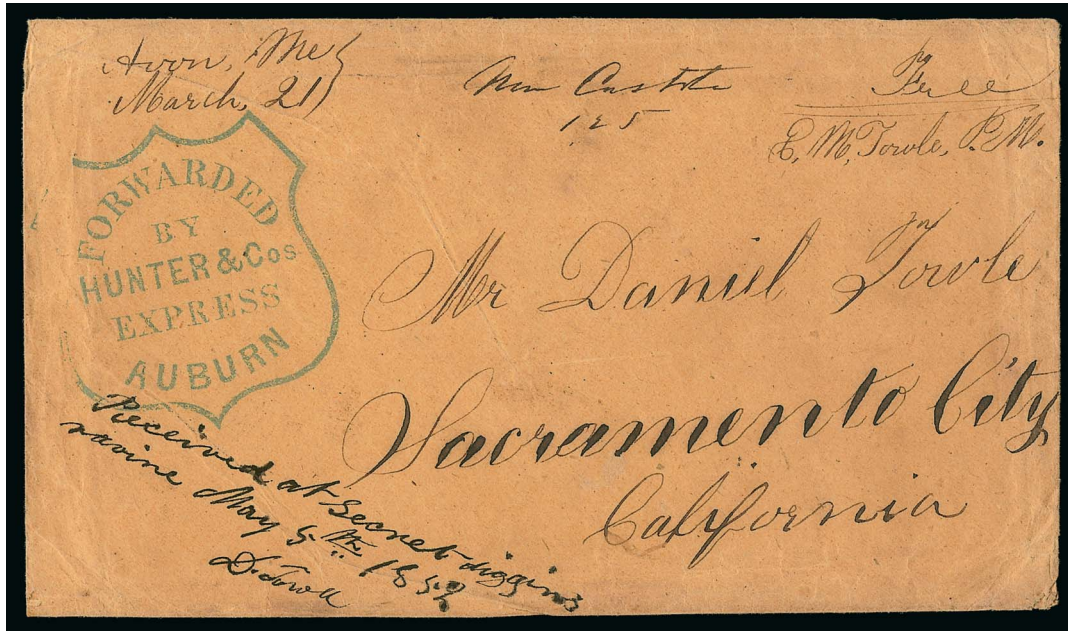 Avon, Me
March, 21
New Castle
125
Free
E. M. Towle, P. M.
FORWARDED
BY
HUNTER & Cos
EXPRESS
AUBURN
Mr Daniel Towle
Sacramento City
California
Received at Secret diggins
ravine May 5th 1852
D. Towle